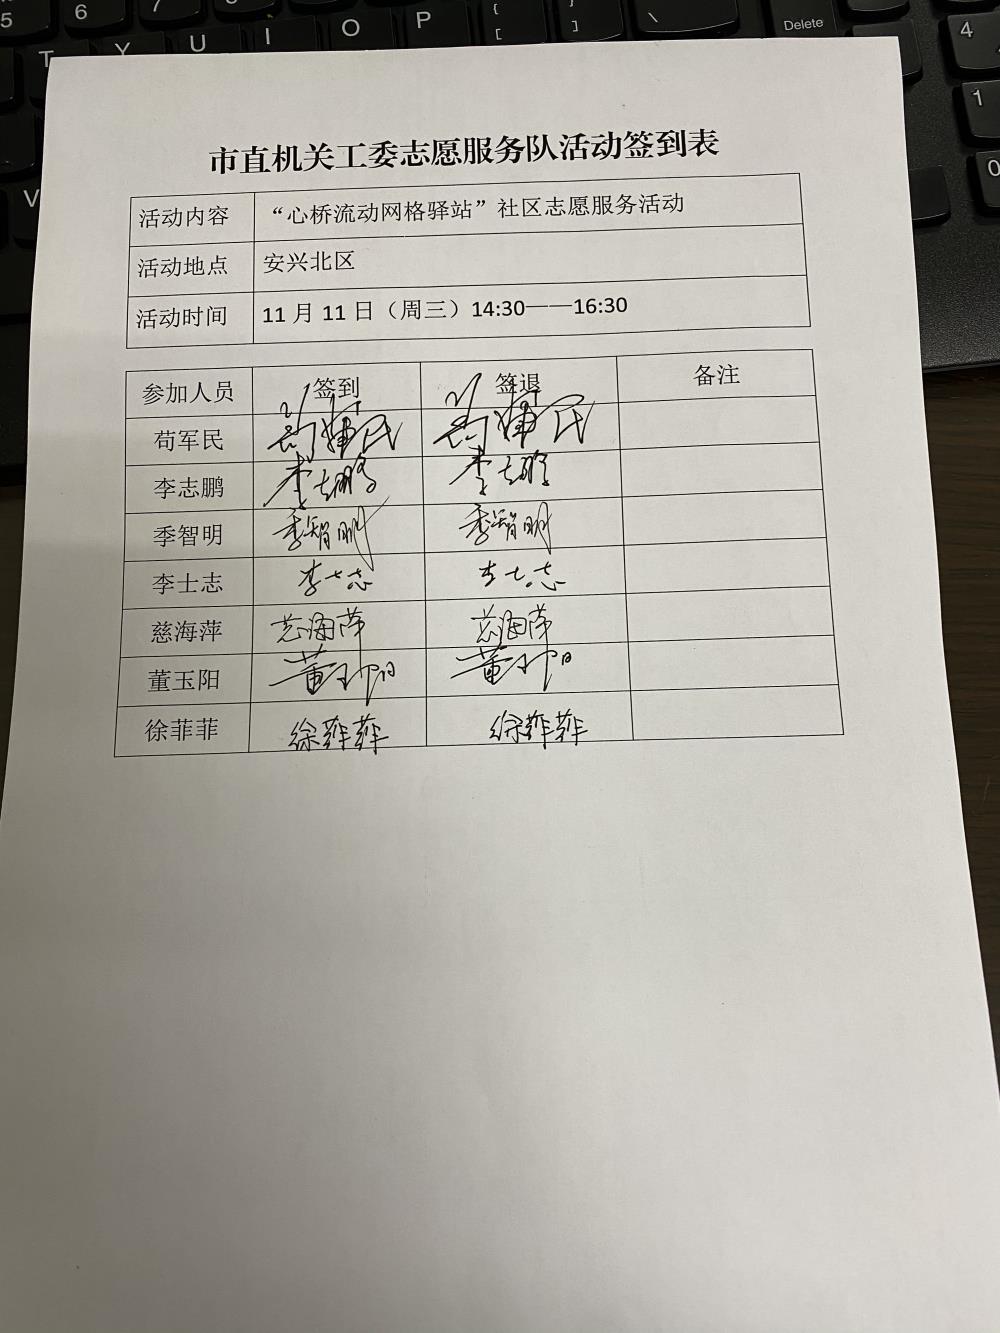 5 6 7 8 9 0 { [ } ] | \ Delete 4
T Y U I O P 1
V 0
市直机关工委志愿服务队活动签到表
活动内容 “心桥流动网格驿站”社区志愿服务活动
活动地点 安兴北区
活动时间 11 月 11 日（周三）14:30——16:30
参加人员 签到 签退 备注
苟军民 苟军民 苟军民
李志鹏 李志鹏 李志鹏
季智明 季智明 季智明
李士志 李士志 李士志
慈海萍 慈海萍 慈海萍
董玉阳 董玉阳 董玉阳
徐菲菲 徐菲菲 徐菲菲